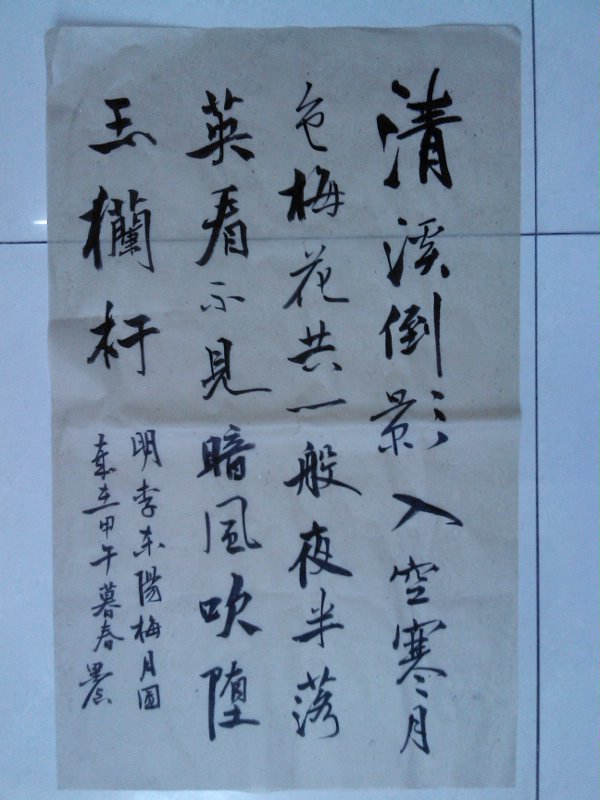 清溪倒影入空寒月
色梅花共一般夜半落
英看不見暗風吹墮
玉欄杆
明李東陽梅月圖
歲在甲午暮春